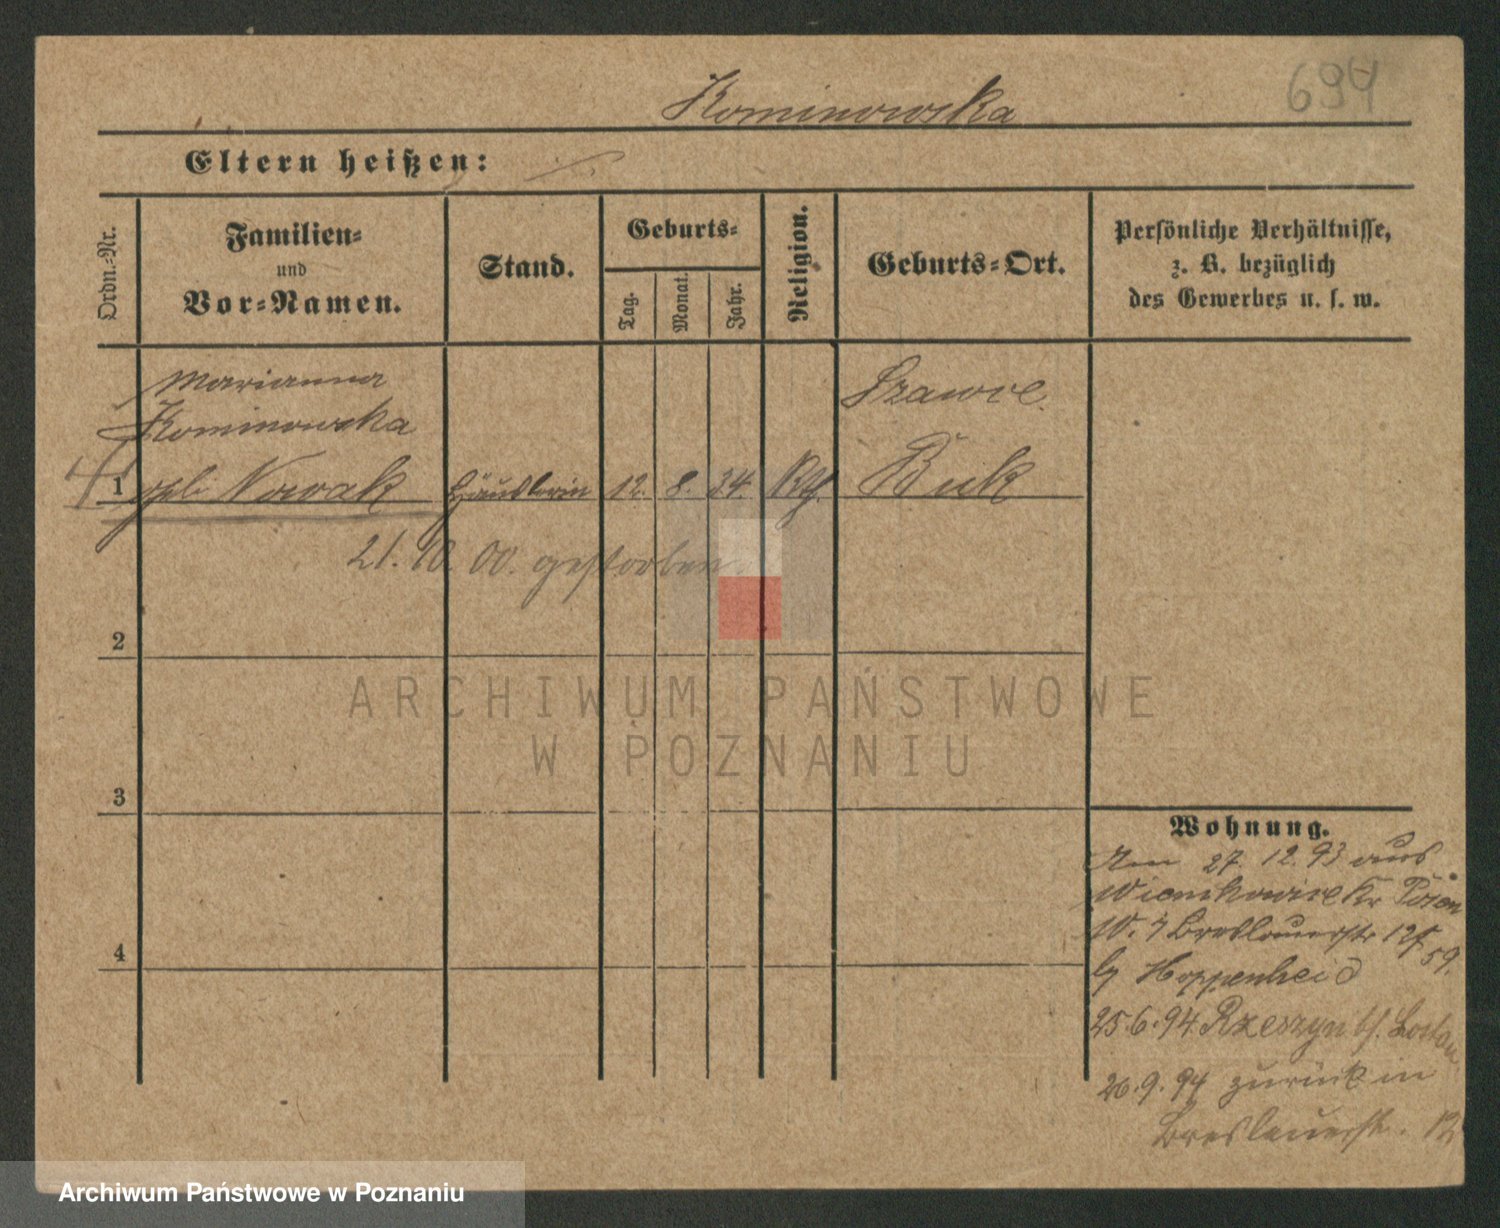 694
Kominowska
Eltern heißen:
Ordn.-Nr.
Familien-
und
Vor-Namen.
Stand.
Geburts-
Tag.
Monat.
Jahr.
Religion.
Geburts-Ort.
Persönliche Verhältnisse,
z. B. bezüglich
des Gewerbes u. s. w.
Marianna
Kominowska
1 Nowak Häuslerin 12. 8. 24. Buk
21. 10. 00. gestorben.
2
3
4
Wohnung.
Am 27. 12. 93 aus
Kr Posen
W. 7 Breslauerstr
59.
b/ Hoppenheid
25.6.94 Rzeszyn
26.9.94 zurück in
Breslauerstr. 12
ARCHIWUM PAŃSTWOWE
W POZNANIU
Archiwum Państwowe w Poznaniu